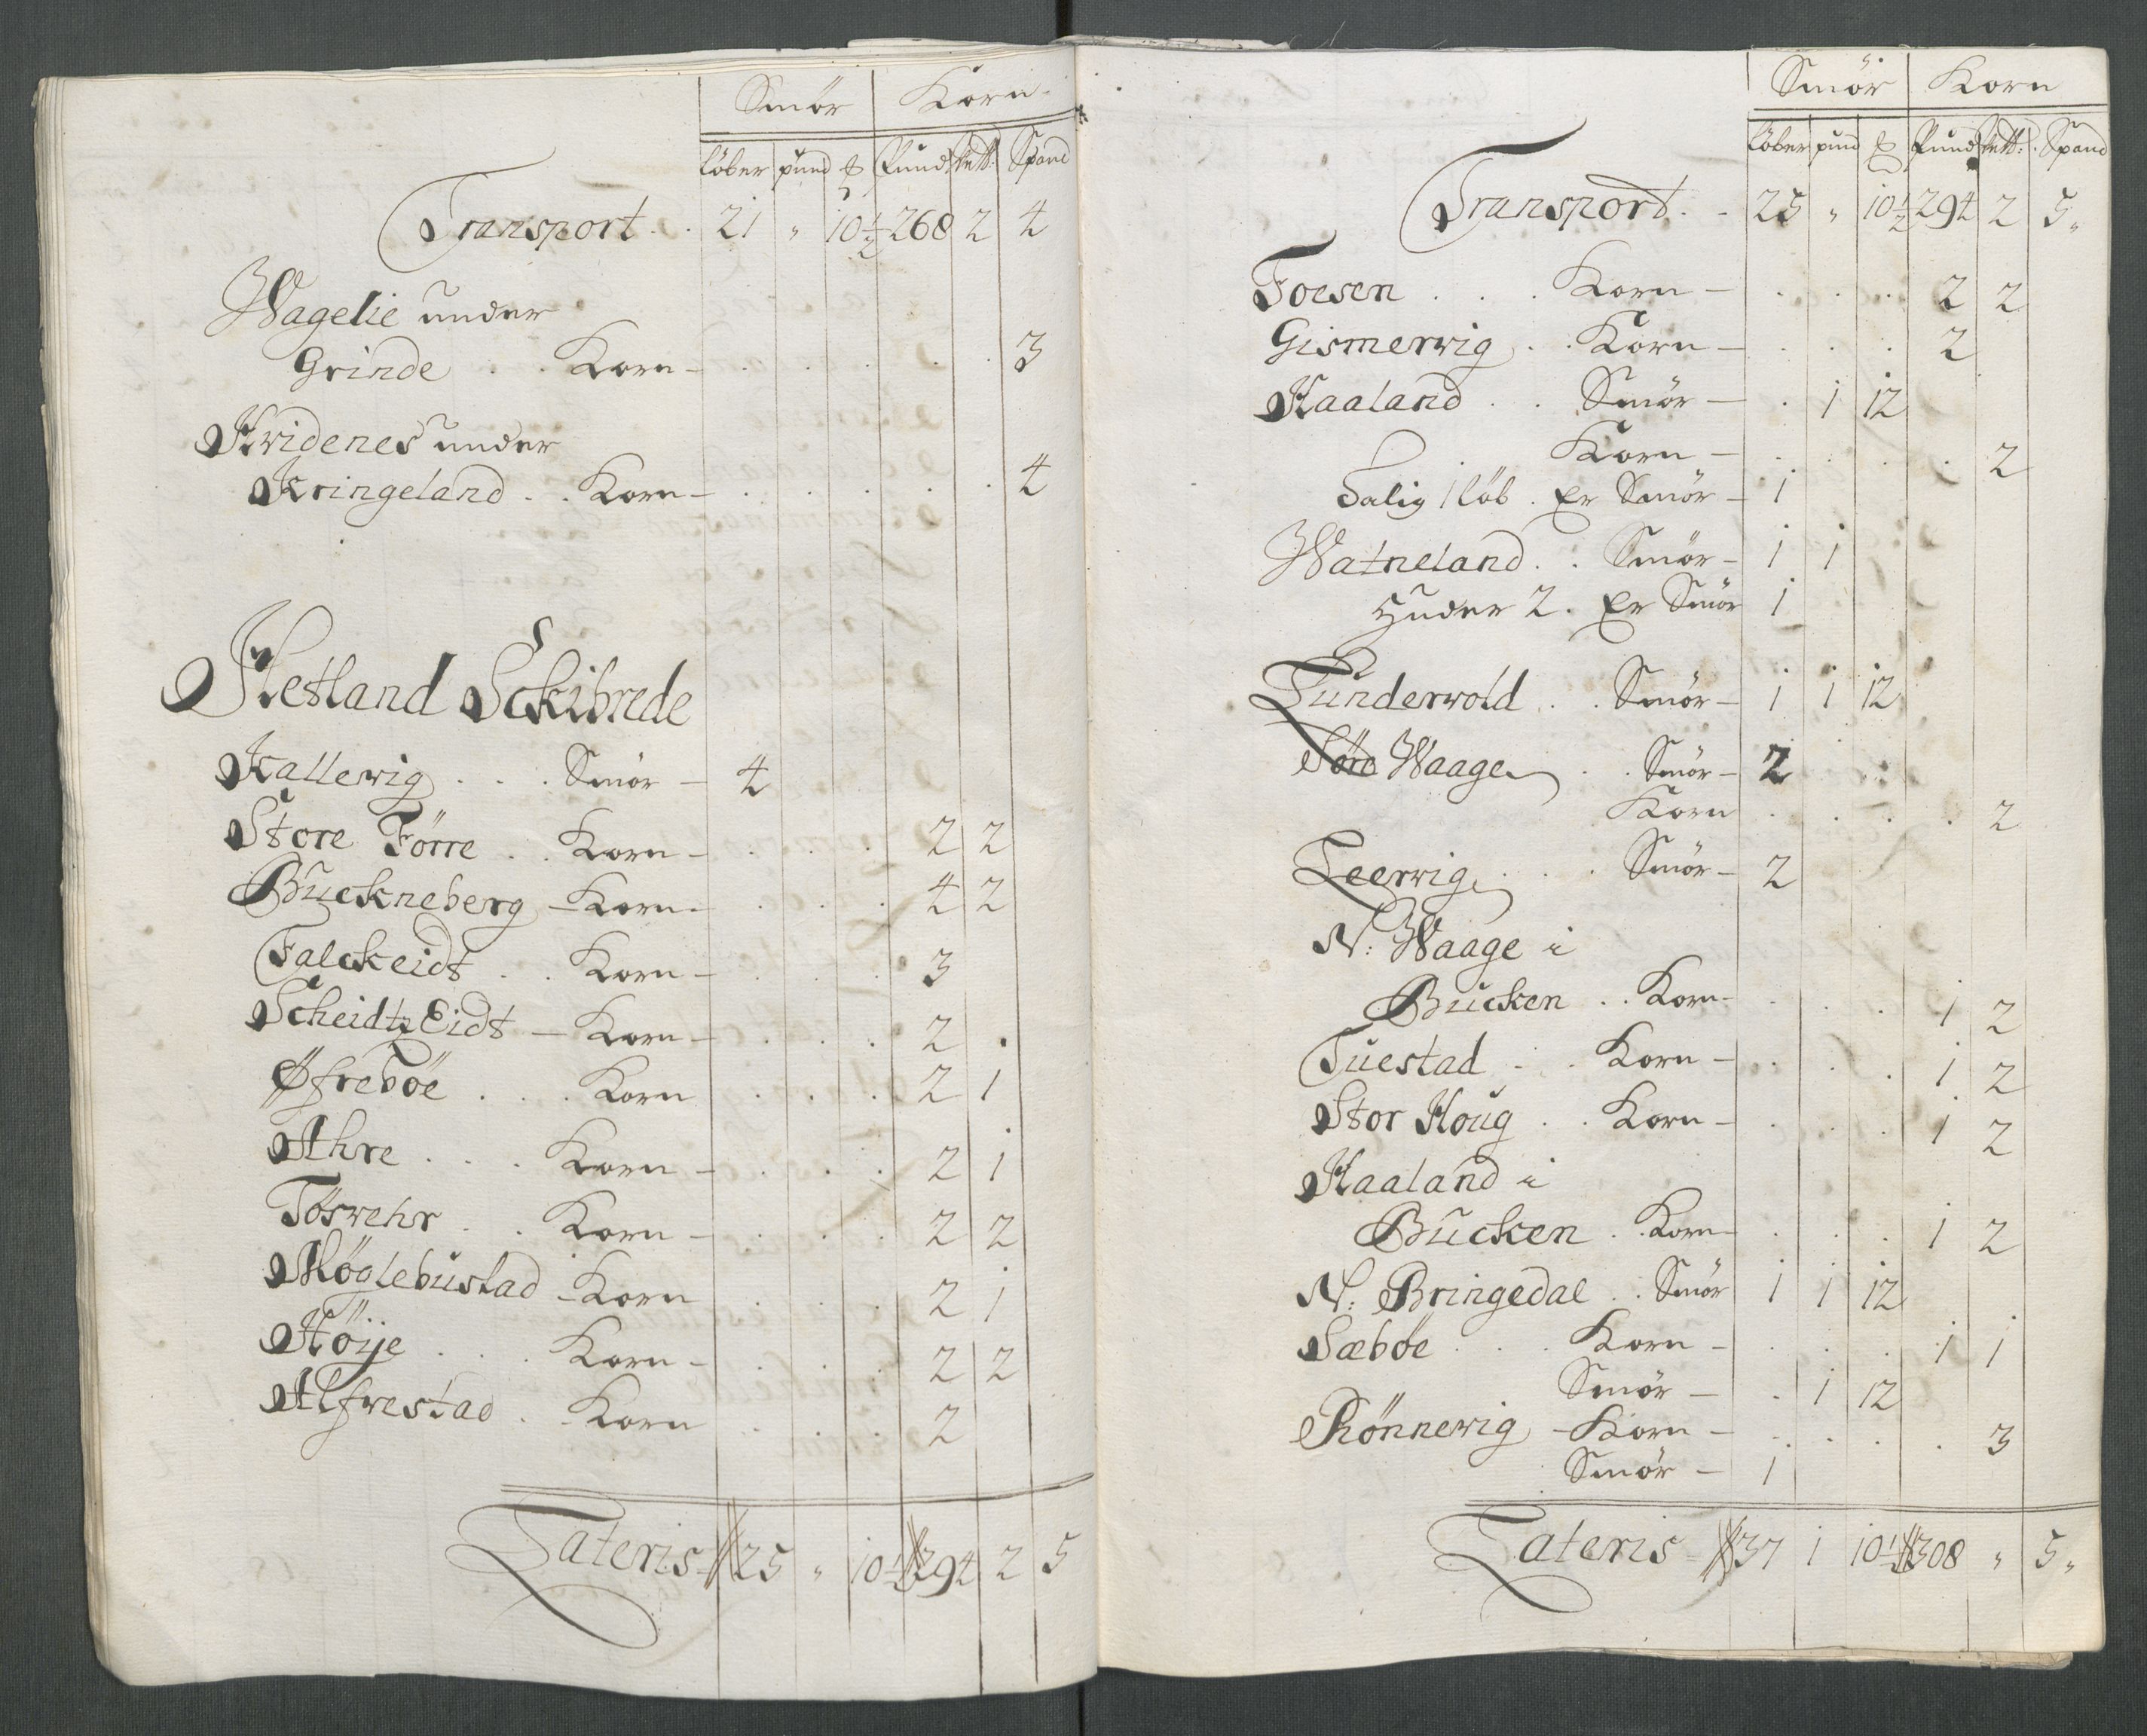 Smör Korn
löber pund ℔ Pund Sett: Spand
Transport . . 21 " 10½ 268 2 4
Wagelie under
Grinde . . Korn - 3
Hvidenes under
Kringeland . . Korn - 4
Hetland Sckibrede
Kallewig . . . Smör - 4
Store Förre . . Korn - 2 2
Buckneberg - Korn - 4 2
Falckeidt . . Korn - 3
Scheidtz Eidt - Korn - 2 .
Øfreböe . . . Korn 2 1
Ahre . . . Korn - 2 1
Töswehr . . Korn - 2 2
Møglebustad - Korn 2 1
Höije . . . Korn - 2 2
Alfrestad . - Korn 2
Lateris - 25 " 10½ 294 2 5
Smör Korn
löber pund ℔ Pund Sett: Spand
Transport . - 25 " 10½ 294 2 5 "
Foesen . . . Korn - 2 2
Gismerwig . . Korn - 2
Haaland . . Smör - . 1 12
Korn - 2
Salig 1 löb . Er Smör - 1
Watneland . . Smör - 1 1
Huder 2 . Er Smör 1
Tunderwold . . Smör - 1 1 12
Söre Waage . . Smör - 2
Korn 2
Leerwig . . . Smör - 2
N: Waage i
Bucken . . Korn - 1 2
Tuestad . . Korn - 1 2
Stor Houg . . Korn - 1 2
Haaland i
Bucken . . Korn - 1 2
N: Bringedal . . Smör 1 1 12
Sæböe . . . Korn - 1 1
Smör - . 1 12
Rönnewig - Korn - 3
Smör - 1
Lateris - 37 1 10½ 308 " 5 "